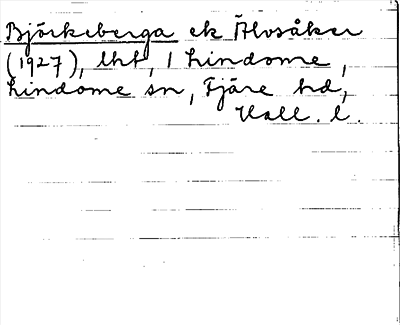 Björkeberga ek Älvsåker
(1927), lht, 1 Lindome,
Lindome sn, Fjäre hd,
Hall. l.